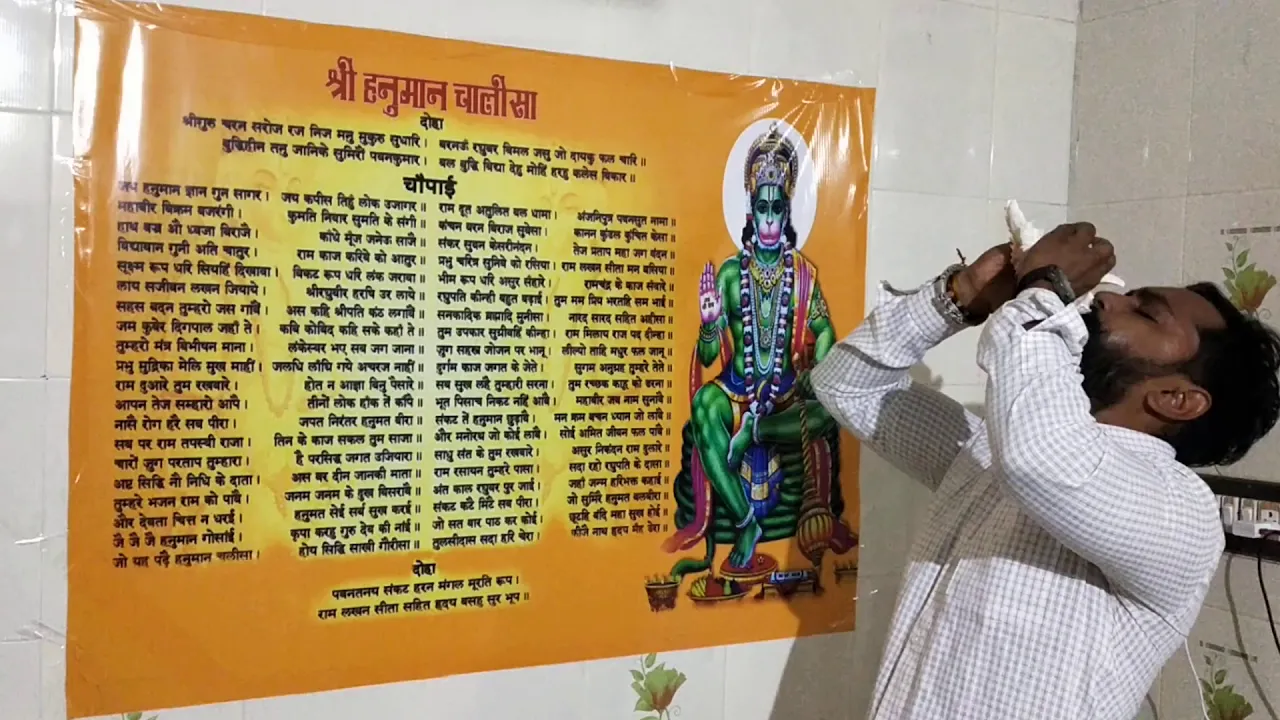 श्री हनुमान चालीसा
दोहा
श्रीगुरु चरन सरोज रज निज मनु मुकुरु सुधारि। बरनऊँ रघुबर बिमल जसु जो दायकु फल चारि॥
बुद्धिहीन तनु जानिके सुमिरौं पवनकुमार। बल बुद्धि बिद्या देहु मोहिं हरहु कलेस बिकार॥
चौपाई
जय हनुमान ज्ञान गुन सागर। जय कपीस तिहुं लोक उजागर॥ राम दूत अतुलित बल धामा। अंजनिपुत्र पवनसुत नामा॥
महाबीर बिक्रम बजरंगी। कुमति निवार सुमति के संगी॥ कंचन बरन बिराज सुबेसा। कानन कुंडल कुंचित केसा॥
हाथ बज्र औ ध्वजा बिराजै। काँधे मूंज जनेऊ साजै॥ संकर सुवन केसरीनंदन। तेज प्रताप महा जग वंदन॥
विद्यावान गुनी अति चातुर। राम काज करिबे को आतुर॥ प्रभु चरित्र सुनिबे को रसिया। राम लखन सीता मन बसिया॥
सूक्ष्म रूप धरि सियहिं दिखावा। बिकट रूप धरि लंक जरावा॥ भीम रूप धरि असुर संहारे। रामचंद्र के काज संवारे॥
लाय सजीवन लखन जियाये। श्रीरघुबीर हरषि उर लाये॥ रघुपति कीन्ही बहुत बड़ाई। तुम मम प्रिय भरतहि सम भाई॥
सहस बदन तुम्हरो जस गावैं। अस कहि श्रीपति कंठ लगावैं॥ सनकादिक ब्रह्मादि मुनीसा। नारद सारद सहित अहीसा॥
जम कुबेर दिगपाल जहाँ ते। कबि कोबिद कहि सके कहाँ ते॥ तुम उपकार सुग्रीवहिं कीन्हा। राम मिलाय राज पद दीन्हा॥
तुम्हरो मंत्र बिभीषन माना। लंकेस्वर भए सब जग जाना॥ जुग सहस्र जोजन पर भानू। लील्यो ताहि मधुर फल जानू॥
प्रभु मुद्रिका मेलि मुख माहीं। जलधि लाँघि गये अचरज नाहीं॥ दुर्गम काज जगत के जेते। सुगम अनुग्रह तुम्हरे तेते॥
राम दुआरे तुम रखवारे। होत न आज्ञा बिनु पैसारे॥ सब सुख लहै तुम्हारी सरना। तुम रच्छक काहू को डरना॥
आपन तेज सम्हारो आपै। तीनों लोक हाँक तें काँपै॥ भूत पिसाच निकट नहिं आवै। महाबीर जब नाम सुनावै॥
नासै रोग हरै सब पीरा। जपत निरंतर हनुमत बीरा॥ संकट तें हनुमान छुड़ावै। मन क्रम बचन ध्यान जो लावै॥
सब पर राम तपस्वी राजा। तिन के काज सकल तुम साजा॥ और मनोरथ जो कोई लावै। सोई अमित जीवन फल पावै॥
चारों जुग परताप तुम्हारा। है परसिद्ध जगत उजियारा॥ साधु संत के तुम रखवारे। असुर निकंदन राम दुलारे॥
अष्ट सिद्धि नौ निधि के दाता। अस बर दीन जानकी माता॥ राम रसायन तुम्हरे पासा। सदा रहो रघुपति के दासा॥
तुम्हरे भजन राम को पावै। जनम जनम के दुख बिसरावै॥ अंत काल रघुबर पुर जाई। जहाँ जन्म हरिभक्त कहाई॥
और देवता चित्त न धरई। हनुमत सेई सर्ब सुख करई॥ संकट कटै मिटै सब पीरा। जो सुमिरै हनुमत बलबीरा॥
जै जै जै हनुमान गोसाईं। कृपा करहु गुरु देव की नांई॥ जो सत बार पाठ कर कोई। छूटहि बंदि महा सुख होई॥
जो यह पढ़ै हनुमान चालीसा। होय सिद्धि साखी गौरीसा॥ तुलसीदास सदा हरि चेरा। कीजै नाथ हृदय मँह डेरा॥
दोहा
पवनतनय संकट हरन मंगल मूरति रूप।
राम लखन सीता सहित हृदय बसहु सुर भूप॥